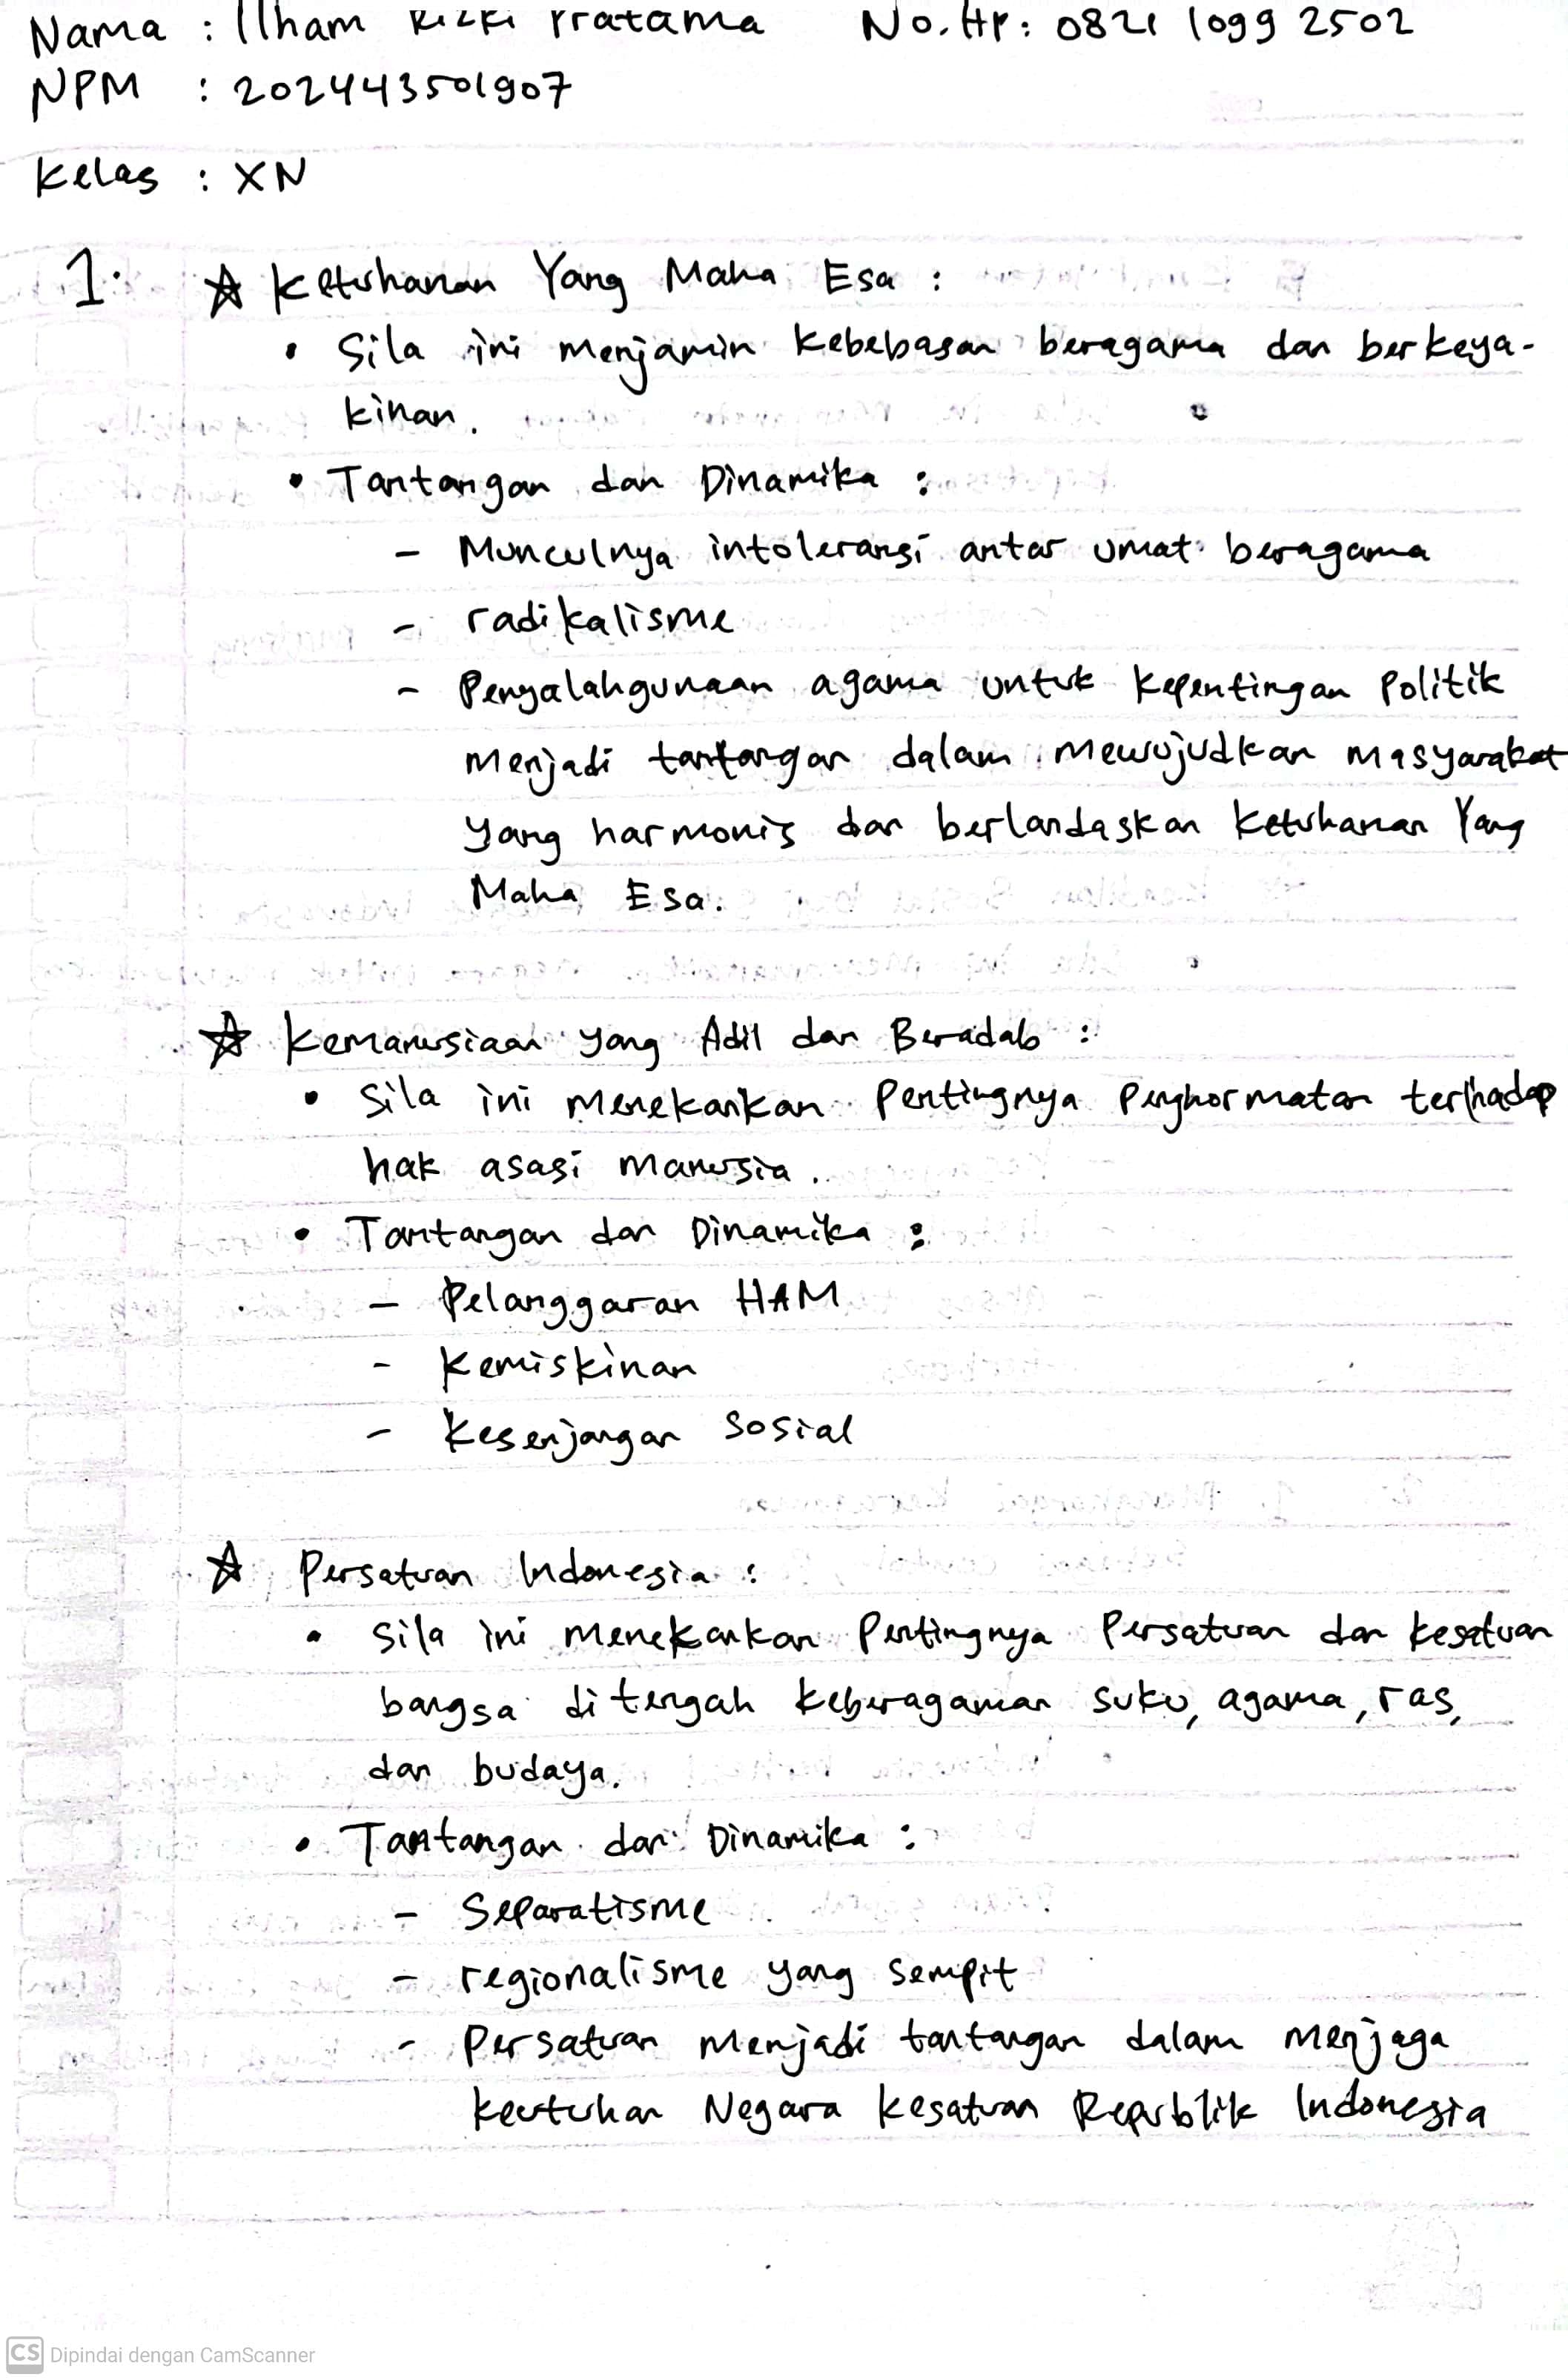 Nama : Ilham Rizki Pratama No. HP: 0821 1099 2502
NPM : 202443501907
Kelas : XN
1. ☆ Ketuhanan Yang Maha Esa :
• Sila ini menjamin kebebasan beragama dan berkeya-
kinan.
• Tantangan dan Dinamika :
- Munculnya intoleransi antar umat beragama
- radikalisme
- Penyalahgunaan agama untuk kepentingan Politik
menjadi tantangan dalam mewujudkan masyarakat
yang harmonis dan berlandaskan Ketuhanan Yang
Maha Esa.
☆ Kemanusiaan yang Adil dan Beradab :
• Sila ini menekankan Pentingnya Penghormatan terhadap
hak asasi manusia.
• Tantangan dan Dinamika :
- Pelanggaran HAM
- Kemiskinan
- Kesenjangan Sosial
☆ Persatuan Indonesia :
• Sila ini menekankan Pentingnya Persatuan dan kesatuan
bangsa ditengah keberagaman suku, agama, ras,
dan budaya.
• Tantangan dan Dinamika :
- Separatisme
- regionalisme yang sempit
- Persatuan menjadi tantangan dalam menjaga
keutuhan Negara Kesatuan Republik Indonesia
CS Dipindai dengan CamScanner